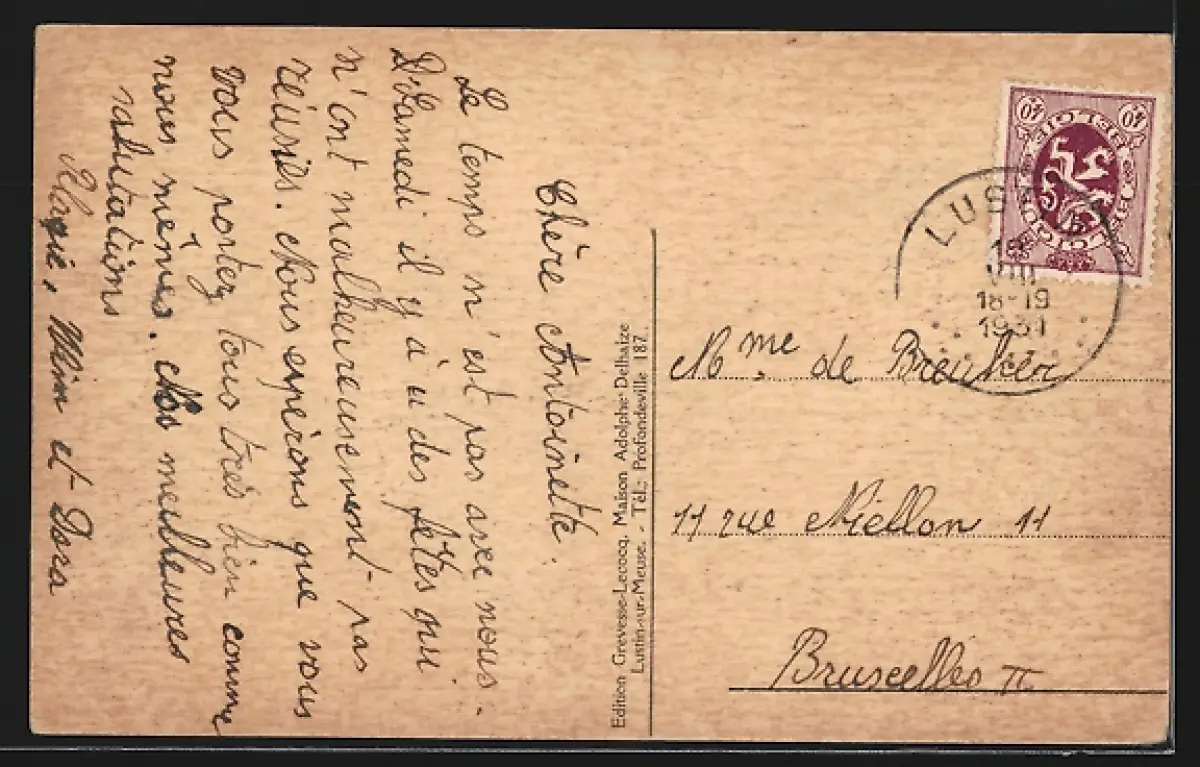 Chère Antoinette.
Le temps n'est pas avec nous.
Samedi il y à u des fêtes qui
n'ont malheureusement pas
réusies. Nous espérons que vous
vous portez tous très bien comme
nous mêmes. Nos meilleures
salutations
Wim et Dora
Edition Grevesse-Lecocq. Maison Adolphe Delhaize
Lustin-sur-Meuse. - Tél.: Profondeville 187.
40 40
LUS
VIII
18-19
1931
Mme de Breuker
11 rue Niellon 11
Bruxelles II